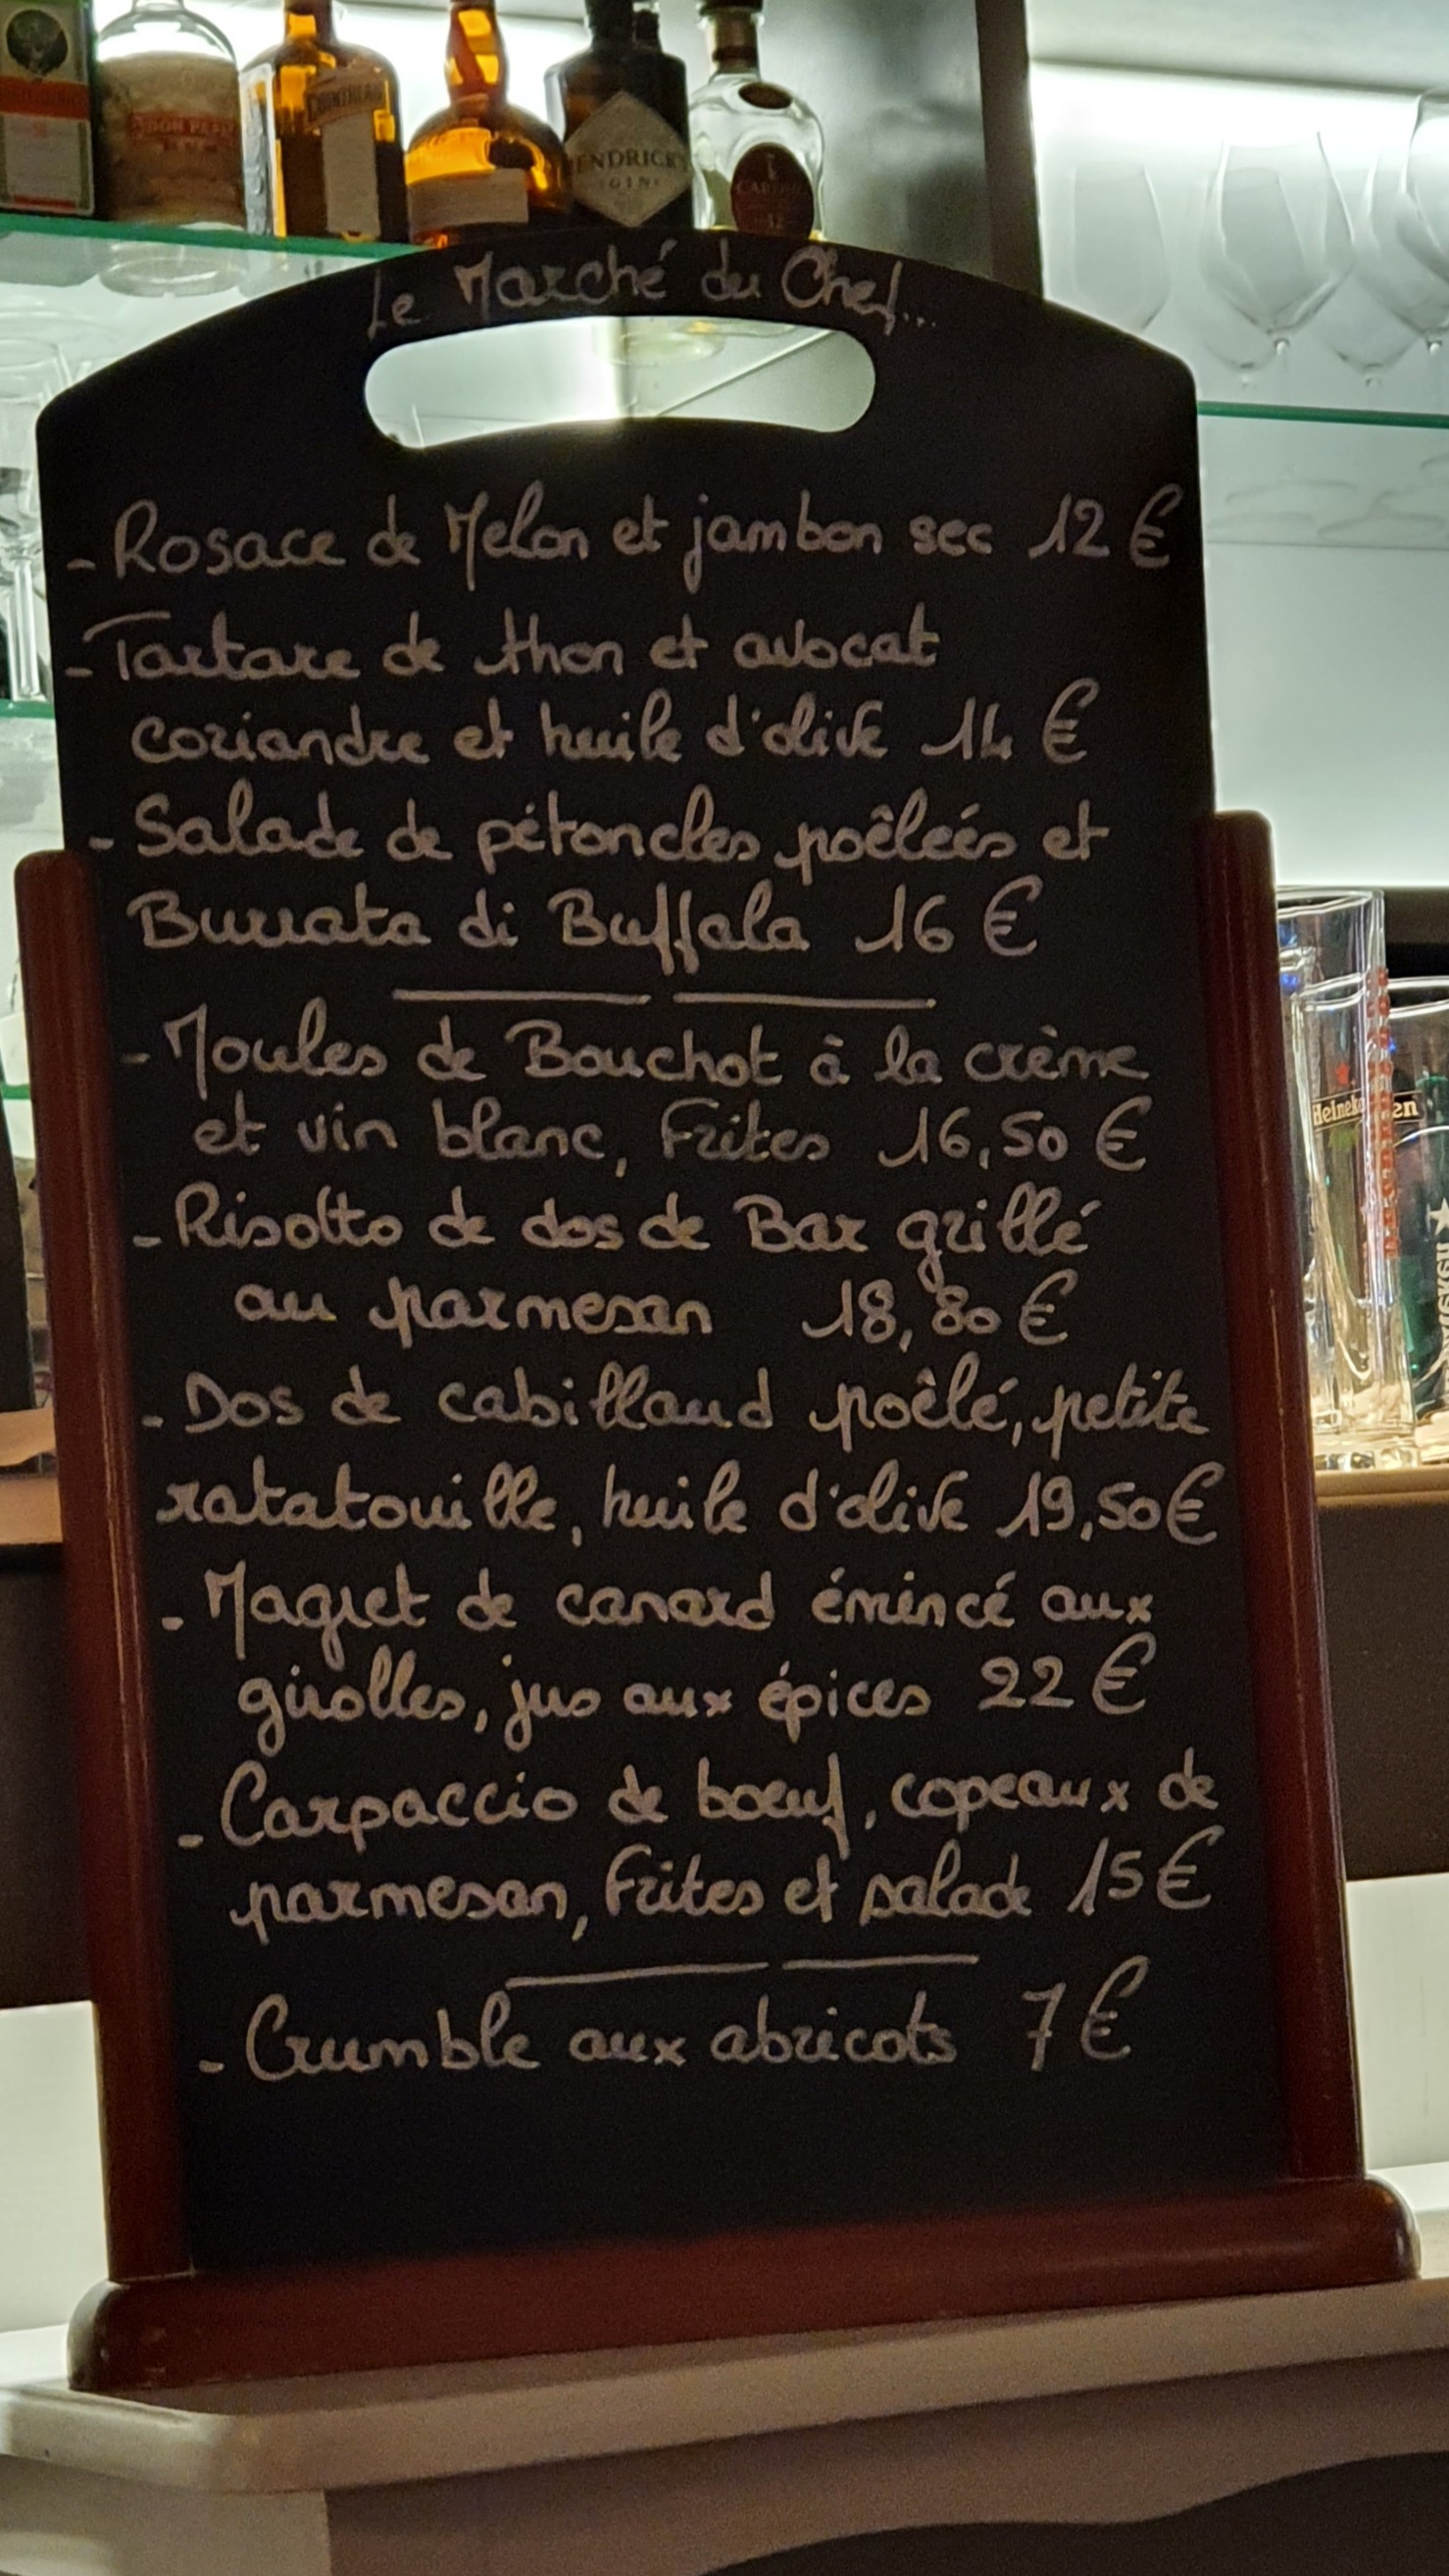 DON PAPA
RUM
COINTREAU
HENDRICK'S
GIN
Le Marché du Chef...
- Rosace de Melon et jambon sec 12 €
- Tartare de thon et avocat
coriandre et huile d'olive 14 €
- Salade de pétoncles poêlées et
Burrata di Buffala 16 €
- Moules de Bouchot à la crème
et vin blanc, Frites 16,50 €
- Risotto de dos de Bar grillé
au parmesan 18,80 €
- Dos de cabillaud poêlé, petite
ratatouille, huile d'olive 19,50 €
- Magret de canard émincé aux
girolles, jus aux épices 22 €
- Carpaccio de boeuf, copeaux de
parmesan, Frites et salade 15 €
- Crumble aux abricots 7 €
Heineken